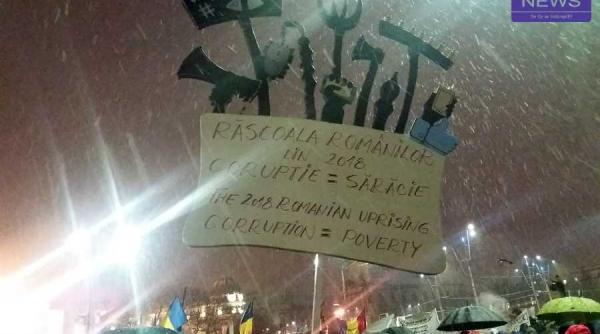 NEWS
De Ce se Întâmplă?
#
RĂSCOALA ROMÂNILOR
DIN 2018
CORUPȚIE = SĂRĂCIE
THE 2018 ROMANIAN UPRISING
CORRUPTION = POVERTY